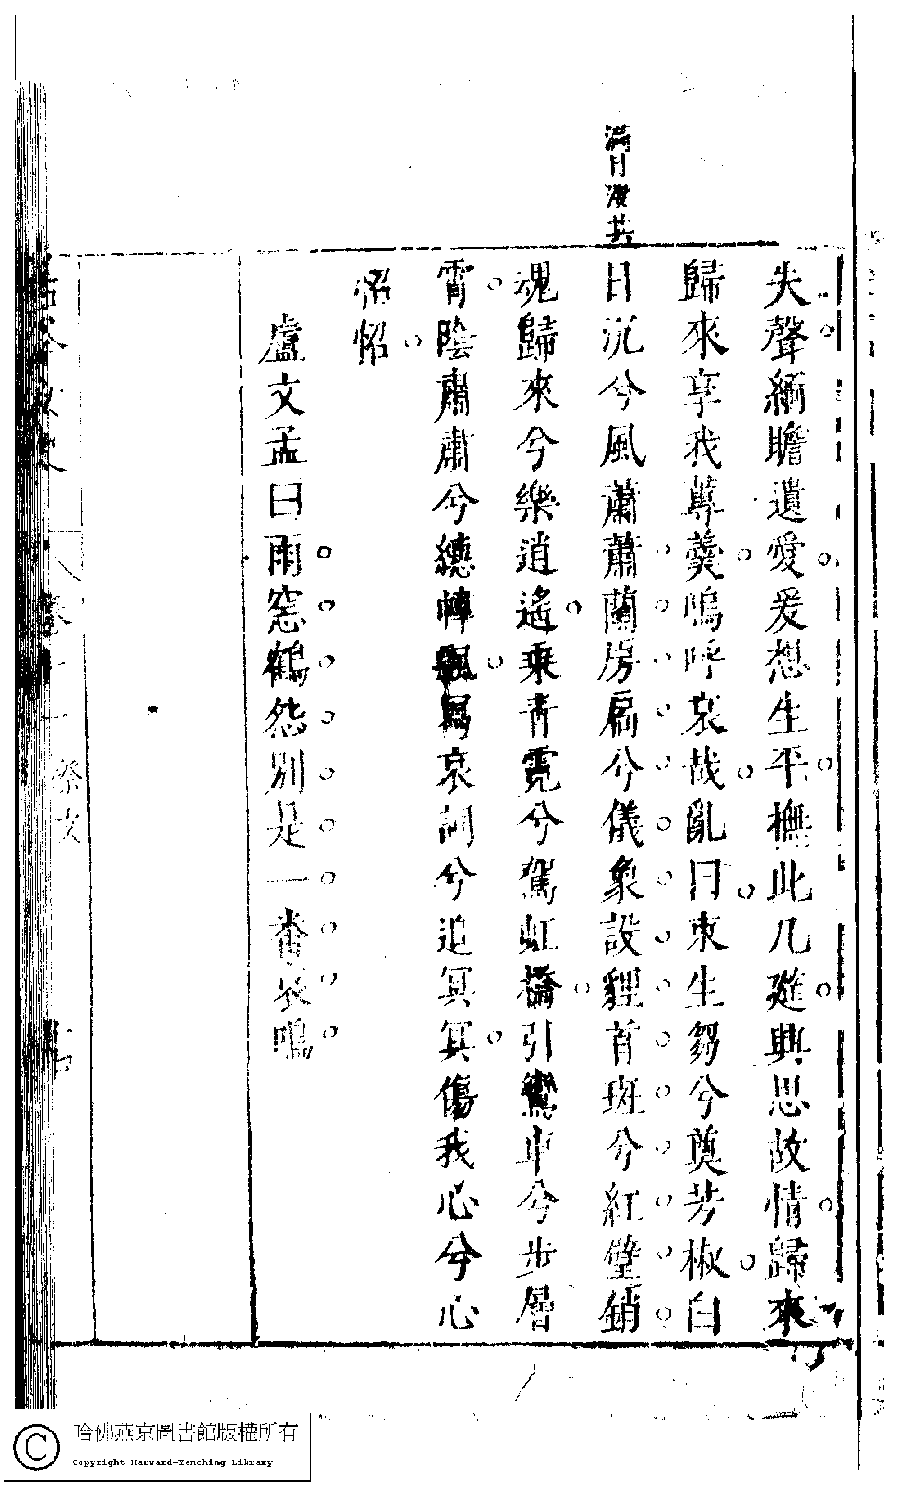 滿目淒其
失聲緬瞻遺愛爰想生平撫此几筵興思故情歸來
歸來享我蓴羹嗚呼哀哉亂曰束生芻兮奠芳椒白
日沉兮風蕭蕭蘭房扃兮儀象設貍首斑兮紅璧銷
魂歸來兮樂逍遙乘青霓兮駕虹橋引鸞車兮步層
霄陰肅肅兮繐幃飄寫哀詞兮追冥冥傷我心兮心
怊怊
盧文孟曰雨窓鶴怨別是一番哀鳴
祭文
哈佛燕京圖書館版權所有
Copyright Harvard-Yenching Library